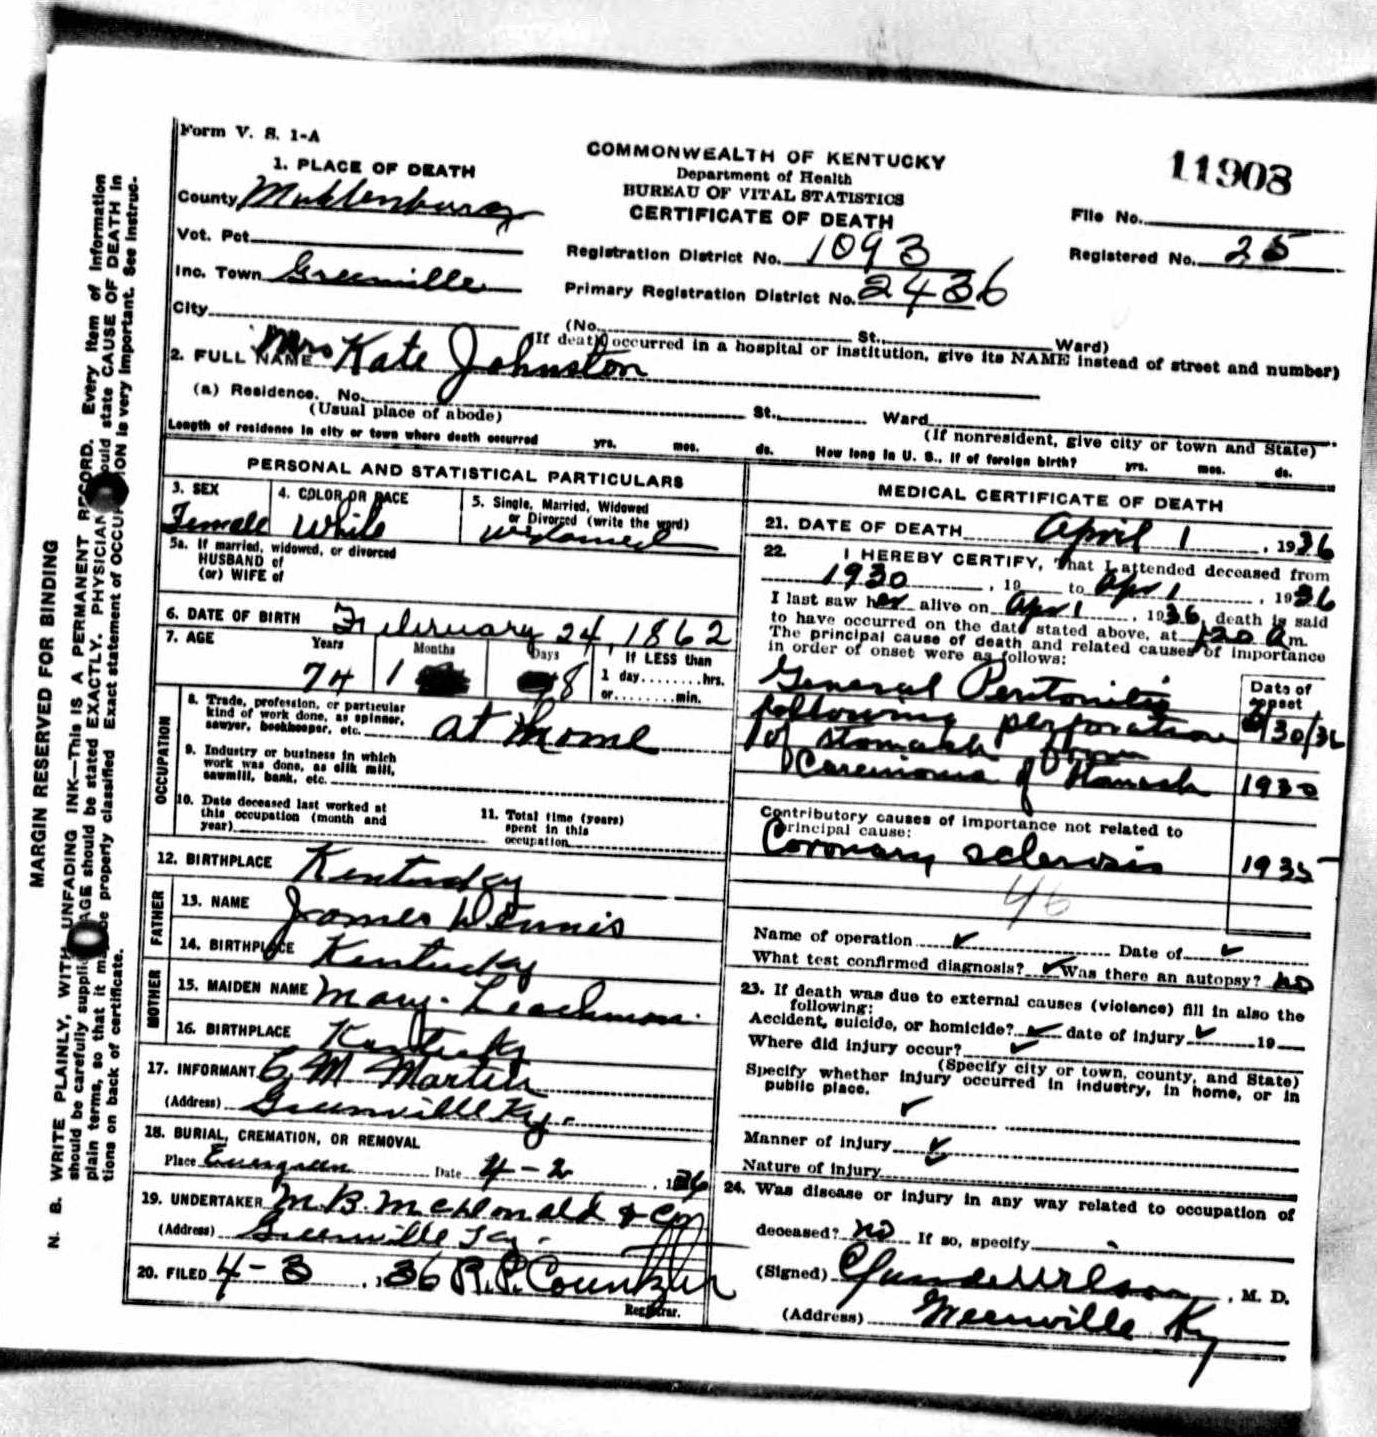 Form V. S. 1-A
1. PLACE OF DEATH
County Muhlenburg
Vot. Pct.
Inc. Town Greenville
City
COMMONWEALTH OF KENTUCKY
Department of Health
BUREAU OF VITAL STATISTICS
CERTIFICATE OF DEATH
Registration District No. 1093
Primary Registration District No. 2436
11908
File No.
Registered No. 25
(No. St., Ward)
(If death occurred in a hospital or institution, give its NAME instead of street and number)
2. FULL NAME Mrs Kate Johnston
(a) Residence. No. St., Ward
(Usual place of abode) (If nonresident, give city or town and State)
Length of residence in city or town where death occurred yrs. mos. ds. How long in U. S., if of foreign birth? yrs. mos. ds.
PERSONAL AND STATISTICAL PARTICULARS
3. SEX Female
4. COLOR OR RACE White
5. Single, Married, Widowed
or Divorced (write the word)
widowed
5a. If married, widowed, or divorced
HUSBAND of
(or) WIFE of
6. DATE OF BIRTH February 24, 1862
7. AGE Years Months Days If LESS than
74 1 8 1 day........hrs.
or........min.
OCCUPATION
8. Trade, profession, or particular
kind of work done, as spinner,
sawyer, bookkeeper, etc. at home
9. Industry or business in which
work was done, as silk mill,
sawmill, bank, etc.
10. Date deceased last worked at
this occupation (month and
year)
11. Total time (years)
spent in this
occupation
12. BIRTHPLACE Kentucky
FATHER
13. NAME James Dennis
14. BIRTHPLACE Kentucky
MOTHER
15. MAIDEN NAME Mary Leachman
16. BIRTHPLACE Kentucky
17. INFORMANT C M Martin
(Address) Greenville Ky.
18. BURIAL, CREMATION, OR REMOVAL
Place Evergreen Date 4-2, 1936
19. UNDERTAKER M.B. McDonald & Co
(Address) Greenville Ky.
20. FILED 4-3, 136 R.P. Countzler
Registrar.
MEDICAL CERTIFICATE OF DEATH
21. DATE OF DEATH April 1, 1936
22. I HEREBY CERTIFY, That I attended deceased from
1930, 19 to Apr 1, 1936
I last saw her alive on Apr 1, 1936, death is said
to have occurred on the date stated above, at 1:20 a m.
The principal cause of death and related causes of importance
in order of onset were as follows:
Date of
onset
General Peritonitis
following perforation 3/30/36
of stomach from
Carcinoma of Stomach 1930
Contributory causes of importance not related to
principal cause:
Coronary sclerosis 1935
46
Name of operation ✓ Date of ✓
What test confirmed diagnosis? ✓ Was there an autopsy? no
23. If death was due to external causes (violence) fill in also the
following:
Accident, suicide, or homicide? ✓ date of injury ✓ 19
Where did injury occur? ✓
(Specify city or town, county, and State)
Specify whether injury occurred in industry, in home, or in
public place.
✓
Manner of injury ✓
Nature of injury ✓
24. Was disease or injury in any way related to occupation of
deceased? no If so, specify
(Signed) Wilson, M. D.
(Address) Greenville Ky
MARGIN RESERVED FOR BINDING
N. B. WRITE PLAINLY, WITH UNFADING INK—This is a PERMANENT RECORD. Every item of information
should be carefully supplied. AGE should be stated EXACTLY. PHYSICIAN should state CAUSE OF DEATH in
plain terms, so that it may be properly classified. Exact statement of OCCUPATION is very important. See instruc-
tions on back of certificate.